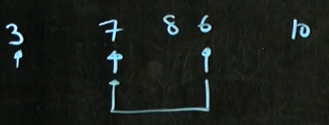 3 7 8 6 10